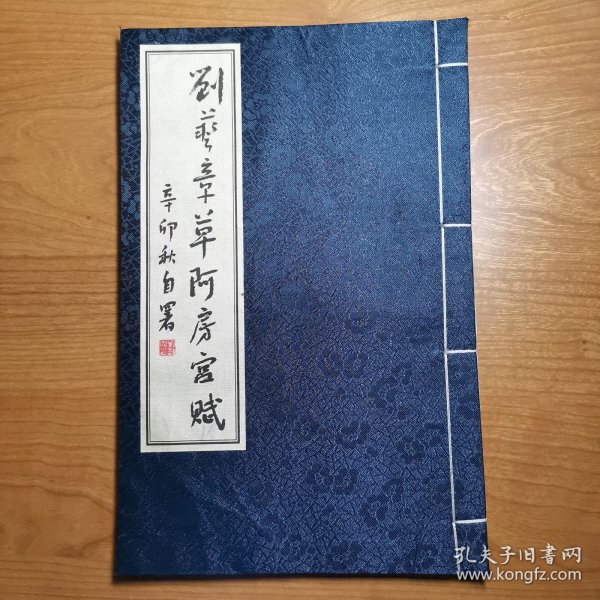 劉藝章草阿房宫賦
辛卯秋自署
孔夫子旧书网
www.kongfz.com